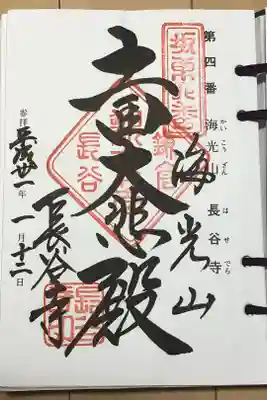 第四番 海光山 長谷寺
かいこうざん はせでら
坂東四番
海光山
十一面大悲殿
長谷
長谷寺
参拝 平成廿一年 一月十二日